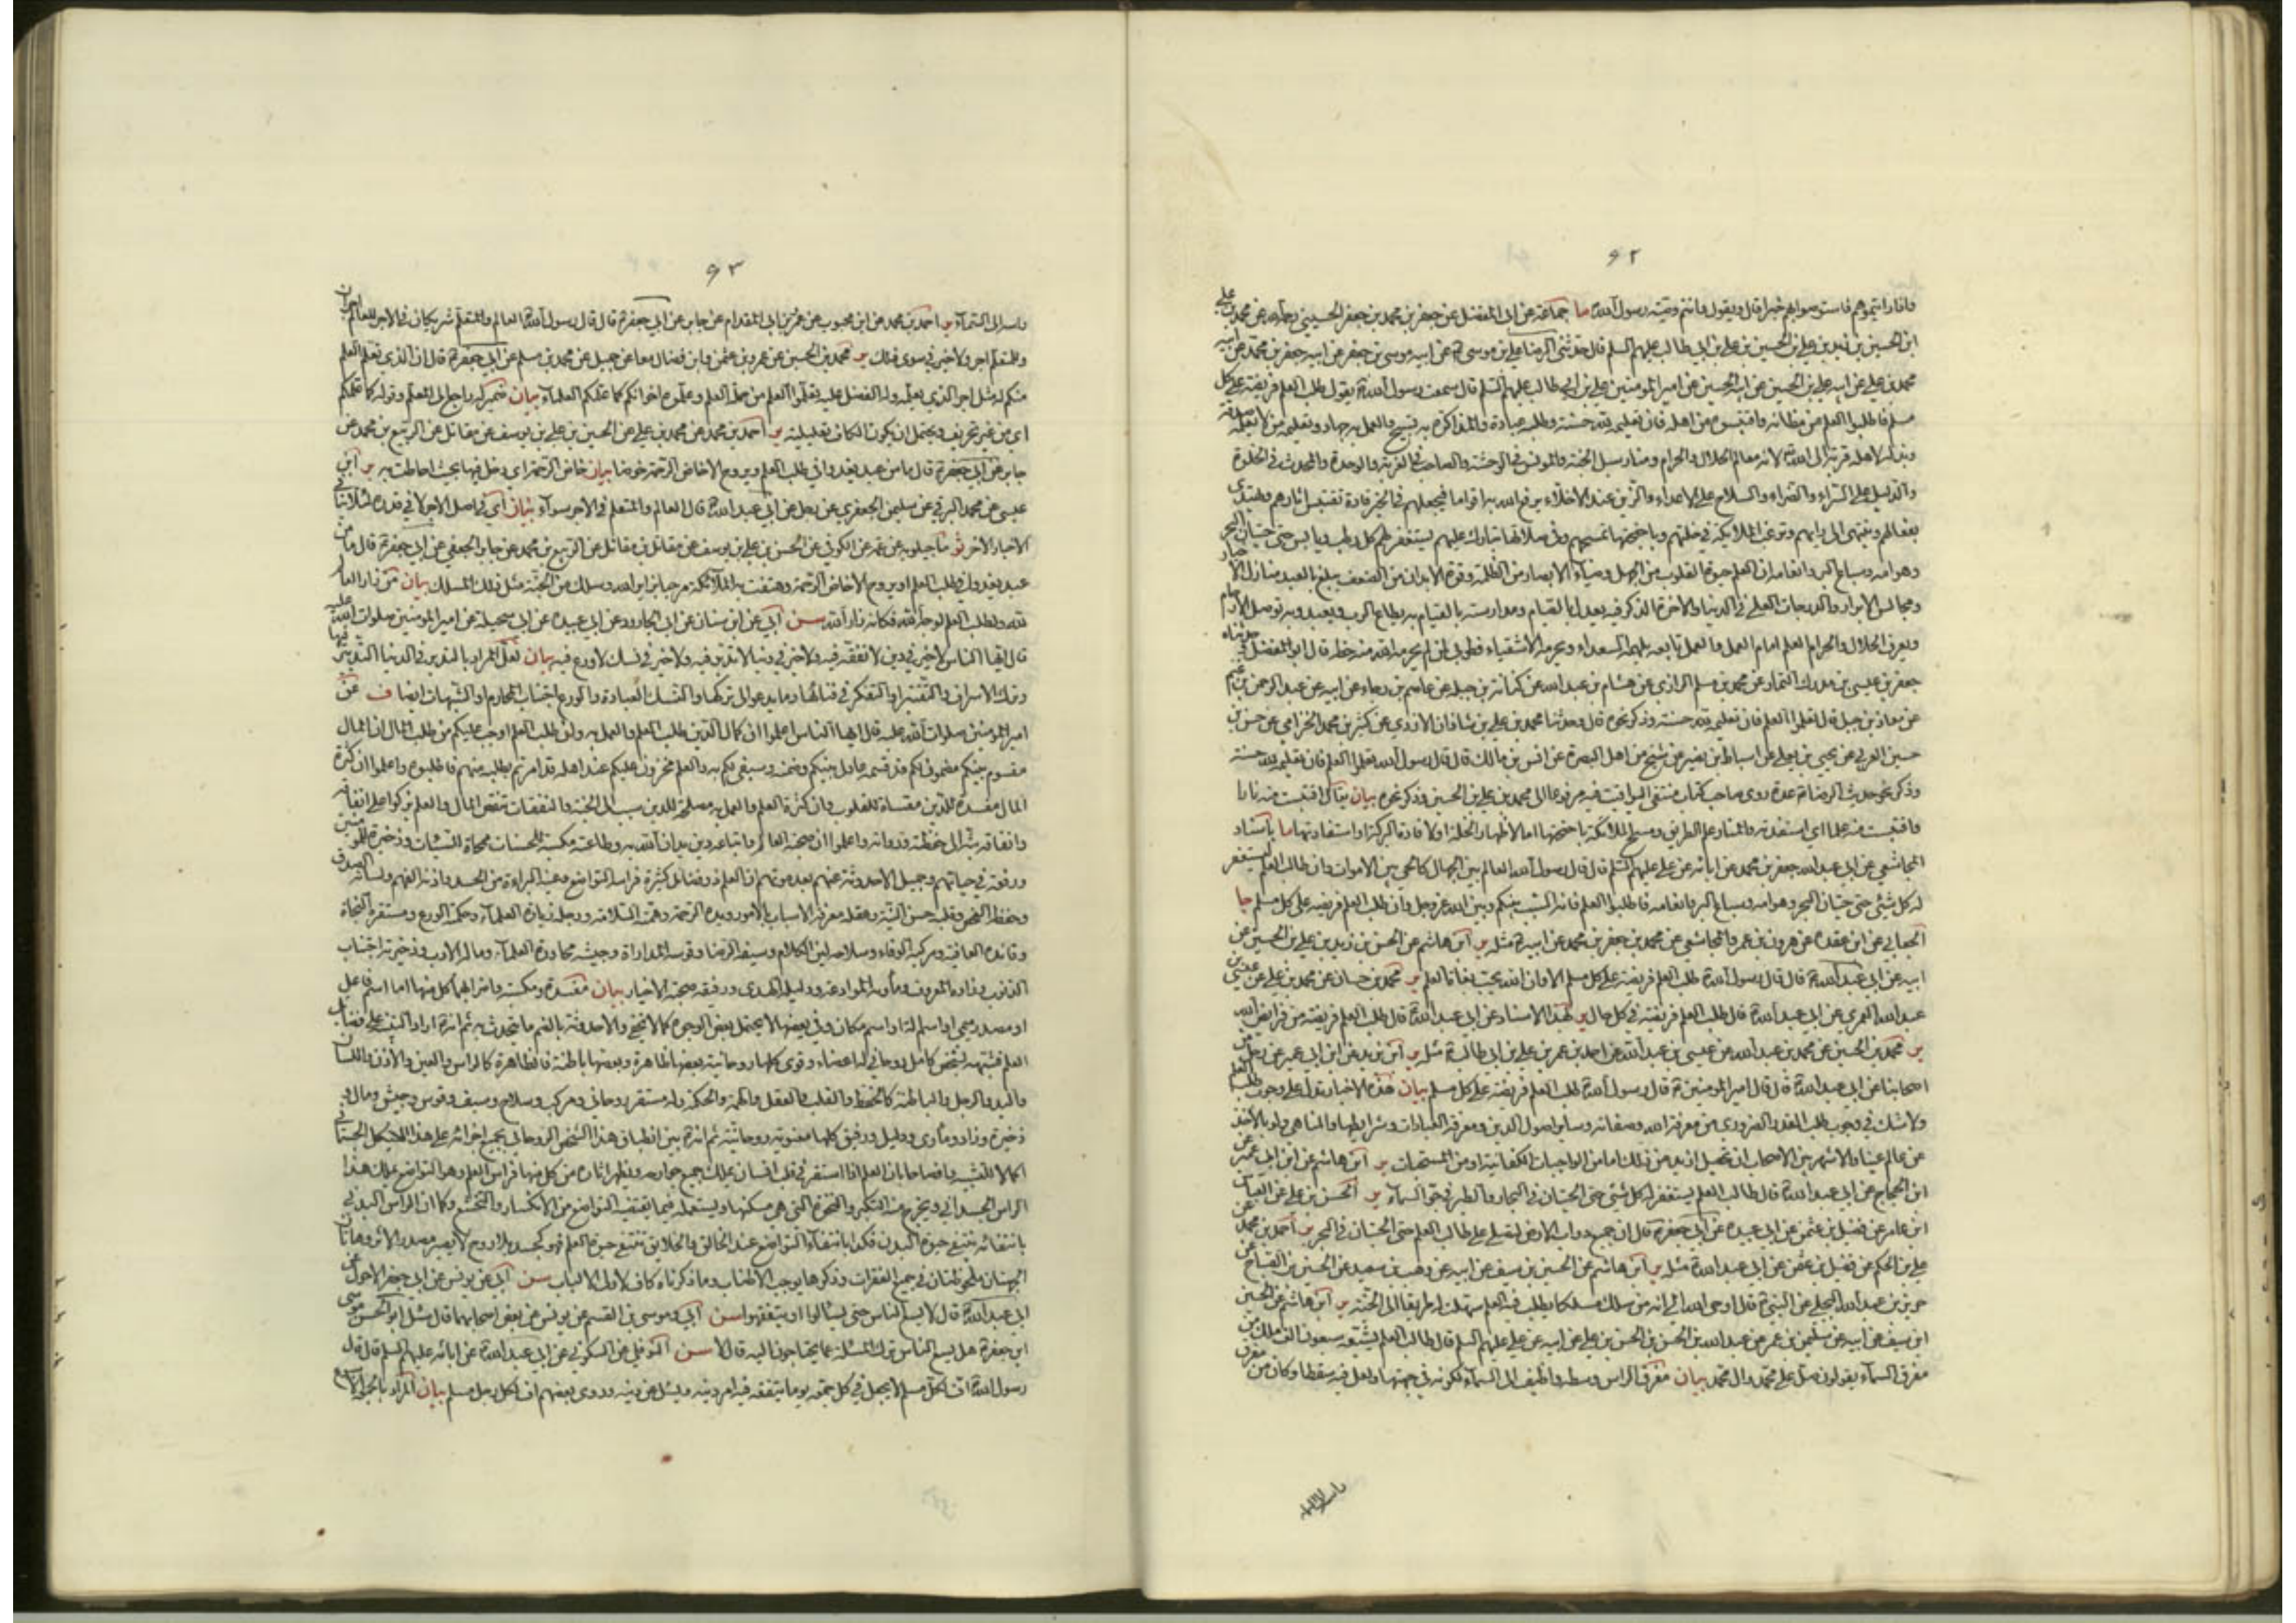 ۶۲
فاذا رايتموهم فاستوصوا بهم خيرا قال ويقول وانتم وصية رسول الله ما جماعة عن ابى المفضل عن جعفر بن محمد بن جعفر الحسيني رحمه الله عن محمد بن على
ابن الحسين بن زيد بن علي بن الحسين بن علي بن ابى طالب عليهم السلم قال حدثنى الرضا علي بن موسى عن ابيه موسى بن جعفر عن ابيه جعفر بن محمد عن ابيه
محمد بن علي عن ابيه علي بن الحسين عن ابيه الحسين عن امير المؤمنين علي بن ابى طالب عليهم السلم قال سمعت رسول الله يقول طلب العلم فريضة على كل
مسلم فاطلبوا العلم من مظانه واقتبسوه من اهله فان تعليمه لله حسنة وطلبه عبادة والمذاكرة به تسبيح والعمل به جهاد وتعليمه من لا يعلمه صدقة
وبذله لاهله قربة الى الله لانه معالم الحلال والحرام ومنار سبل الجنة والمونس في الوحشة والصاحب في الغربة والوحدة والمحدث في الخلوة
والدليل على السراء والضراء والسلاح على الاعداء والزين عند الاخلاء يرفع الله به اقواما فيجعلهم في الخير قادة تقتبس اثارهم ويهتدى
بفعالهم وينتهى الى رايهم وترغب الملائكة في خلتهم وباجنحتها تمسحهم وفي صلاتها تبارك عليهم يستغفر لهم كل رطب ويابس حتى حيتان البحر
وهوامه وسباع البر وانعامه ان العلم حيوة القلوب من الجهل وضياء الابصار من الظلمة وقوة الابدان من الضعف يبلغ بالعبد منازل الاخيار
ومجالس الابرار والدرجات العلى في الدنيا والاخرة الذكر فيه يعدل بالصيام ومدارسته بالقيام به يطاع الرب ويعبد وبه توصل الارحام
ويعرف الحلال والحرام العلم امام العمل والعمل تابعه يلهمه السعداء ويحرمه الاشقياء فطوبى لمن لم يحرمه الله منه حظه قال ابو المفضل حدثناه
جعفر بن عيسى بن مدرك التمار عن محمد بن مسلم الرازي عن هشام بن عبد الله عن كنانة بن جبلة عن عاصم بن رجاء عن ابيه عن عبد الرحمن بن غنم
عن معاذ بن جبل قال تعلموا العلم فان تعليمه لله حسنة وذكر نحوه قال وحدثنا محمد بن علي بن شاذان الازدي عن كثير بن محمد الحزامي عن حسن بن
حسين العرني عن يحيى بن يعلى عن اسباط بن نصر عن شيخ من اهل البصرة عن انس بن مالك قال قال رسول الله تعلموا العلم فان تعليمه لله حسنة
وذكر نحو حديث الرضا عدة روى صاحب كتاب منتقى اليواقيت فيه مرفوعا الى محمد بن علي بن الحسين وذكر نحوه بيان يقال اقتبست منه نارا
واقتبست منه علما اى استفدته والمنار علم الطريق ومسح الملائكة باجنحتها اما لاظهار الخلة او لافادة البركة او استفادتها ما باسناد
المجاشعي عن ابى عبد الله جعفر بن محمد عن ابائه عن على عليهم السلم قال قال رسول الله العالم بين الجهال كالحي بين الاموات وان طالب العلم ليستغفر
له كل شئ حتى حيتان البحر وهوامه وسباع البر وانعامه فاطلبوا العلم فانه السبب بينكم وبين الله عز وجل وان طلب العلم فريضة على كل مسلم جا
الجعابي عن ابن عقدة عن هرون بن عمرو المجاشعي عن محمد بن جعفر بن محمد عن ابيه مثله ير ابن هاشم عن الحسن بن زيد بن علي بن الحسين عن
ابيه عن ابى عبد الله قال قال رسول الله طلب العلم فريضة على كل مسلم الا وان الله يحب بغاة العلم ير محمد بن حسان عن محمد بن علي عن عيسى بن
عبد الله العمري عن ابى عبد الله قال طلب العلم فريضة في كل حال ير بهذا الاسناد عن ابى عبد الله قال طلب العلم فريضة من فرايض الله
ير محمد بن الحسين عن محمد بن عبد الله عن عيسى بن عبد الله عن احمد بن عمر بن علي بن ابى طالب مثله ير ابن يزيد عن ابن ابى عمير عن رجل من
اصحابنا عن ابى عبد الله قال قال امير المؤمنين قال رسول الله طلب العلم فريضة على كل مسلم بيان هذه الاخبار تدل على وجوب طلب العلم
ولا شك في وجوب طلب القدر الضروري من معرفة الله وصفاته وساير اصول الدين ومعرفة العبادات وشرايطها والمناهي ولو بالاخذ
عن عالم عينا والاشهر بين الاصحاب ان تحصيل ازيد من ذلك اما من الواجبات الكفائية او من المستحبات ير ابن هاشم عن ابن ابى عمير عن
ابن الحجاج عن ابى عبد الله قال طالب العلم يستغفر له كل شئ حتى الحيتان في البحار والطير في جو السماء ير الحسن بن على عن العباس
ابن عامر عن فضيل بن عثمن عن ابى عبيدة عن ابى جعفر قال ان جميع دواب الارض لتصلي على طالب العلم حتى الحيتان في البحر ير احمد بن محمد عن
علي بن الحكم عن فضيل بن عثمن عن ابى عبد الله مثله ير ابن هاشم عن الحسين بن سيف عن ابيه عن وهب بن سعيد عن الحسين بن الصباح عن
جرير بن عبد الله البجلي عن النبي قال اوحى الله الى انه من سلك مسلكا يطلب فيه العلم سهلت له طريقا الى الجنة ير ابن هاشم عن الحسين
ابن سيف عن ابيه عن سليمن بن عمر عن عبد الله بن الحسن بن الحسن بن علي عن ابيه عن علي عليهم السلم قال طالب العلم يشيعه سبعون الف ملك من
مفرق السماء يقولون صل على محمد وال محمد بيان مفرق الراس وسطه واضيف الى السماء لكونه في جهتها ولعل فيه سقطا وكان من مفرق
۶۳
راسه الى السماء ير احمد بن محمد عن ابن محبوب عن عمرو بن ابى المقدام عن جابر عن ابى جعفر قال قال رسول الله العالم والمتعلم شريكان في الاجر للعالم اجران
وللمتعلم اجر ولا خير في سوى ذلك ير محمد بن الحسين عن عمرو بن عثمن وابن فضال معا عن جميل عن محمد بن مسلم عن ابى جعفر قال ان الذي تعلم العلم
منكم له مثل اجر الذي يعلمه وله الفضل عليه تعلموا العلم من حملة العلم وعلموه اخوانكم كما علمكم العلماء بيان ضمير له راجع الى المعلم وقوله كما علمكم
اى من غير تحريف ويحتمل ان يكون الكاف تعليلية ير احمد بن محمد عن محمد بن علي عن الحسين بن علي بن يوسف عن مقاتل عن الربيع بن محمد عن
جابر عن ابى جعفر قال ما من عبد يغدو في طلب العلم ويروح الا خاض الرحمة خوضا بيان خاض الرحمة اى دخل فيها بحيث احاطت به ير ابن
عيسى عن محمد البرقي عن سليمن الجعفري عن رجل عن ابى عبد الله قال العالم والمتعلم في الاجر سواء بيان اى في اصل الاجر لا في قدره لئلا ينافي
الاخبار الاخر ثو ماجيلويه عن عمه عن الكوفي عن الحسن بن علي بن يوسف عن مقاتل بن مقاتل عن الربيع بن محمد عن جابر الجعفي عن ابى جعفر قال ما من
عبد يغدو في طلب العلم او يروح الا خاض الرحمة وهتفت به الملائكة مرحبا بزاير الله وسلك من الجنة مثل ذلك المسلك بيان من زار العالم
لله ولطلب العلم لوجه الله فكانه زار الله سن ابى عن ابن سنان عن ابى الجارود عن ابى عبيدة عن ابى سخيلة عن امير المؤمنين صلوات الله عليه
قال ايها الناس لا خير في دين لا تفقه فيه ولا خير في دنيا لا تدبر فيه ولا خير في نسك لا ورع فيه بيان لعل المراد بالتدبر في الدنيا التدبير فيها
وترك الاسراف والتقتير او التفكر في فنائها وما يدعو الى تركها والنسك العبادة والورع اجتناب المحارم او الشبهات ايضا ف عن
امير المؤمنين صلوات الله عليه قال ايها الناس اعلموا ان كمال الدين طلب العلم والعمل به وان طلب العلم اوجب عليكم من طلب المال ان المال
مقسوم بينكم مضمون لكم قد قسمه عادل بينكم وضمنه وسيفي لكم به والعلم مخزون عليكم عند اهله قد امرتم بطلبه منهم فاطلبوه واعلموا ان كثرة
المال مفسدة للدين مقساة للقلوب وان كثرة العلم والعمل به مصلحة للدين سبب الى الجنة والنفقات تنقص المال والعلم يزكو على انفاقه
وانفاقه بثه الى حفظته ورواته واعلموا ان صحبة العالم واتباعه دين يدان الله به وطاعته مكسبة للحسنات ممحاة للسيئات وذخيرة للمؤمنين
ورفعة في حياتهم وجميل الاحدوثة عنهم بعد موتهم ان العلم ذو فضائل كثيرة فراسه التواضع وعينه البراءة من الحسد واذنه الفهم ولسانه الصدق
وحفظه الفحص وقلبه حسن النية وعقله معرفة الاسباب بالامور ويده الرحمة وهمته السلامة ورجله زيارة العلماء وحكمته الورع ومستقره النجاة
وقائده العافية ومركبه الوفاء وسلاحه لين الكلام وسيفه الرضا وقوسه المداراة وجيشه محاورة العلماء وماله الادب وذخيرته اجتناب
الذنوب وزاده المعروف ومأواه الموادعة ودليله الهدى ورفيقه صحبة الاخيار بيان مفسدة ومكسبة واضرابهما كل منها اما اسم فاعل
او مصدر ميمى او اسم الة او اسم مكان وفي بعضها لا يحتمل بعض الوجوه كما لا يخفى والاحدوثة بالضم ما يتحدث به ثم انه اراد التنبيه على فضايل
العلم فشبهه بشخص كامل روحاني له اعضاء وقوى كلها روحانية بعضها ظاهرة وبعضها باطنة فالظاهرة كالراس والعين والاذن واللسان
واليد والرجل والباطنة كالحفظ والقلب والعقل والهمة والحكمة وله مستقر روحاني ومركب وسلاح وسيف وقوس وجيش ومال و
ذخيرة وزاد ومأوى ودليل ورفيق كلها معنوية روحانية ثم انه بين انطباق هذا الشخص الروحاني بجميع اجزائه على هذا الهيكل الجسماني
اكمالا للتشبيه وافصاحا بان العلم اذا استقر في قلب انسان يملك جميع جوارحه ويظهر اثاره من كل منها فراس العلم وهو التواضع يملك هذا
الراس الجسداني ويخرج منه التكبر والنخوة التى هى مسكنها ويستعمله فيما يقتضيه التواضع من الانكسار والتخشع وكما ان الراس البدني
بانتفائه ينتفي حيوة البدن فكذا بانتفاء التواضع عند الخالق والخلايق ينتفي حيوة العلم فهو كجسد بلا روح لا يصير مصدرا لاثر وهاتان
الجهتان ملحوظتان في جميع الفقرات وذكرها يوجب الاطناب وما ذكرناه كاف لاولى الالباب سن ابى عن يونس عن ابى جعفر الاحول عن
ابى عبد الله قال لا يسع الناس حتى يسالوا او يتفقهوا سن ابى وموسى بن القسم عن يونس عن بعض اصحابهما قال سئل ابو الحسن موسى
ابن جعفر هل يسع الناس ترك المسئلة عما يحتاجون اليه قال لا سن النوفلي عن السكوني عن ابى عبد الله عن ابائه عليهم السلم قال قال
رسول الله اف لكل مسلم لا يجعل في كل جمعة يوما يتفقه فيه امر دينه ويسئل عن دينه وروى بعضهم اف لكل رجل مسلم بيان المراد بالجمعة الاسبوع